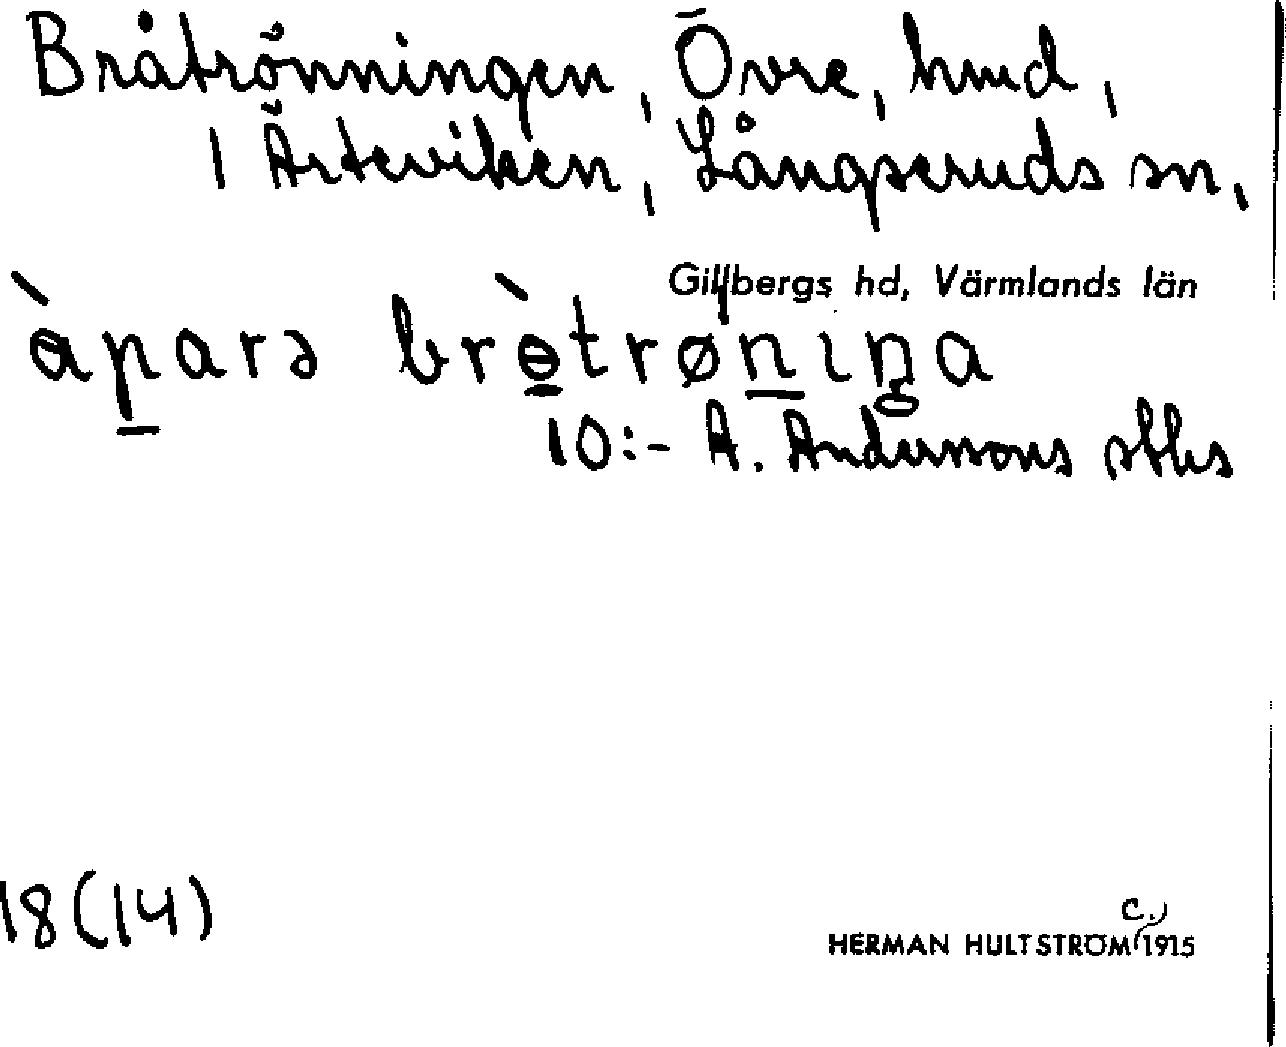 Bråtrönningen, Övre, hmd,
1 Ärteviken, Långseruds sn,
Gillbergs hd, Värmlands län
10:- A. Anderssons stks
18(14)
c.
HERMAN HULTSTRÖM 1915